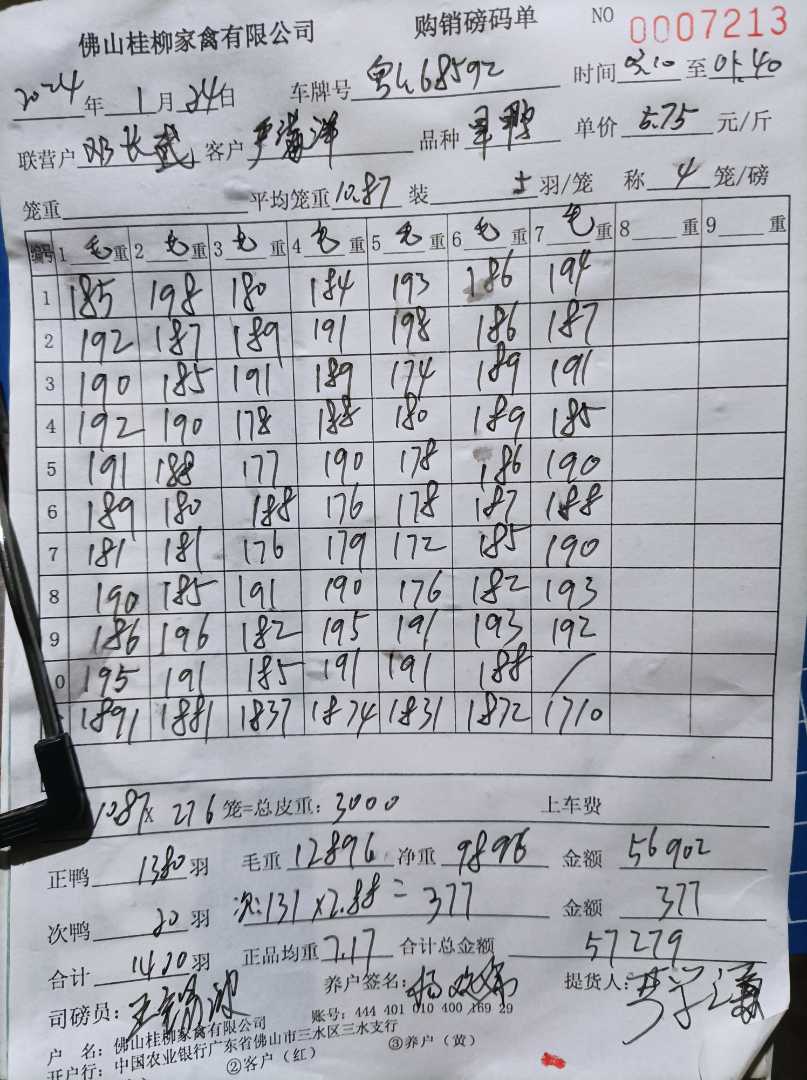 佛山桂柳家禽有限公司 购销磅码单 NO 0007213
2024年 1月 24日 车牌号 粤L68592 时间 03.10 至 05.40
联营户 邓长武 客户 严海洋 品种 单价 5.75 元/斤
笼重 平均笼重 10.87 装 5 羽/笼 称 4 笼/磅
编号 1 毛重 2 毛重 3 毛重 4 毛重 5 毛重 6 毛重 7 毛重 8 重 9 重
1 185 198 180 184 193 186 194
2 192 187 189 191 198 186 187
3 190 185 191 189 174 189 191
4 192 190 178 188 180 189 185
5 191 188 177 190 178 186 190
6 189 180 188 176 178 187 188
7 181 181 176 179 172 185 190
8 190 185 191 190 176 182 193
9 186 196 182 195 191 193 192
0 195 191 185 191 191 188 /
1891 1881 1837 1874 1831 1872 1710
10.87 x 276 笼=总皮重: 3000 上车费
正鸭 1380 羽 毛重 12896 净重 9896 金额 56902
次鸭 20 羽 次: 131 x 2.88 = 377 金额 377
合计 1400 羽 正品均重 7.17 合计总金额 57279
司磅员: 养户签名: 提货人:
户 名: 佛山桂柳家禽有限公司 账号: 444 401 010 400 169 29
开户行: 中国农业银行广东省佛山市三水区三水支行
②客户(红) ③养户(黄)